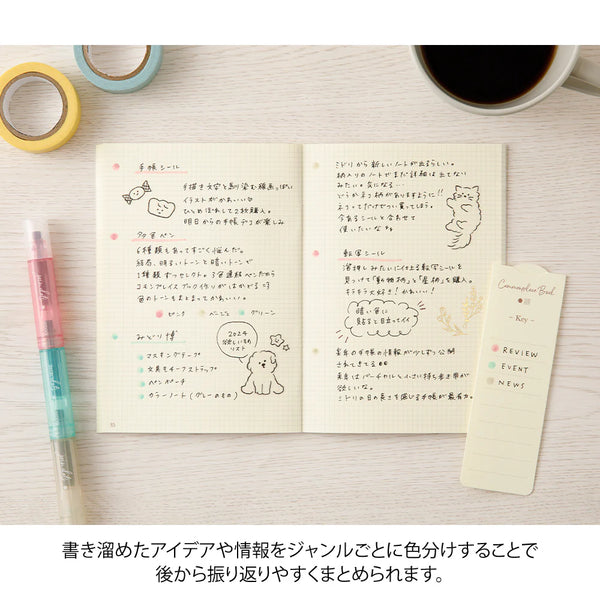 手帳シール
手描き文字と馴染む線画っぽい
イラストがかわいい♡
ひとめぼれして2枚購入。
明日からの手帳デコが楽しみ
多色ペン
6種類もあってすごく悩んだ。
結局、明るいトーンと暗いトーンで
1種類ずつセレクト。3色連結ペンだから
コモンプレイスブック作りがはかどる=3
色のトーンもまとまってかわいい。
ピンク
ベージュ
グリーン
みどり博
2024
欲しいもの
リスト
マスキングテープ
文具モチーフストラップ
ペンポーチ
カラーノート(グレーのもの)
ミドリから新しいノートが出るらしい。
柄入りのノートでまだ詳細は出てない
みたい。気になる…
どうかネコ柄がありますように!!
ネコってだけでつい買ってしまう。
今あるシールと合わせて
使いたいな
転写シール
見つけて「動物柄」と「星柄」を購入。
キラキラ大好き!かわいい!
暗い色に
貼ると目立ってイイ
来年の手帳の情報が少しずつ公開
されてきてる
来年はバーチカルと小さい持ち歩き帯が
欲しいな。
ミドリの日の長さを感じる手帳が最有力。
Commonplace Book
- Key -
REVIEW
EVENT
NEWS
書き溜めたアイデアや情報をジャンルごとに色分けすることで
後から振り返りやすくまとめられます。